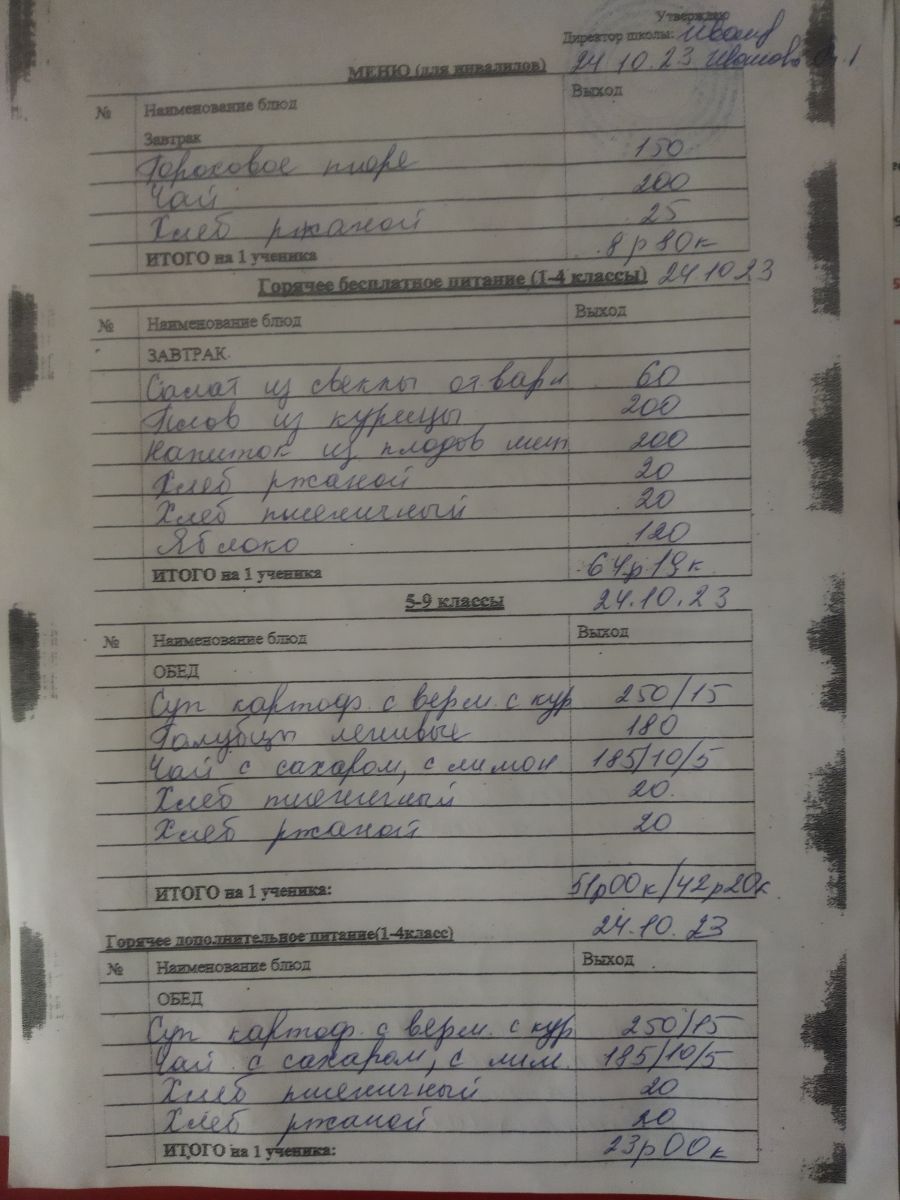 Утверждаю
Директор школы:
24.10.23
МЕНЮ (для инвалидов)
№ Наименование блюд Выход
Завтрак
Гороховое пюре 150
Чай 200
Хлеб ржаной 25
ИТОГО на 1 ученика 8р80к
Горячее бесплатное питание (1-4 классы) 24.10.23
№ Наименование блюд Выход
ЗАВТРАК
Салат из свеклы отварн 60
Плов из курицы 200
Напиток из плодов шип 200
Хлеб ржаной 20
Хлеб пшеничный 20
Яблоко 120
ИТОГО на 1 ученика 64р19к
5-9 классы 24.10.23
№ Наименование блюд Выход
ОБЕД
Суп картоф. с верм. с кур 250/15
Голубцы ленивые 180
Чай с сахаром, с лимон 185/10/5
Хлеб пшеничный 20.
Хлеб ржаной 20
ИТОГО на 1 ученика: 51р00к/42р20к
24.10.23
Горячее дополнительное питание(1-4класс)
№ Наименование блюд Выход
ОБЕД
Суп картоф. с верм. с кур 250/15
Чай с сахаром, с лим. 185/10/5
Хлеб пшеничный 20
Хлеб ржаной 20
ИТОГО на 1 ученика: 23р00к